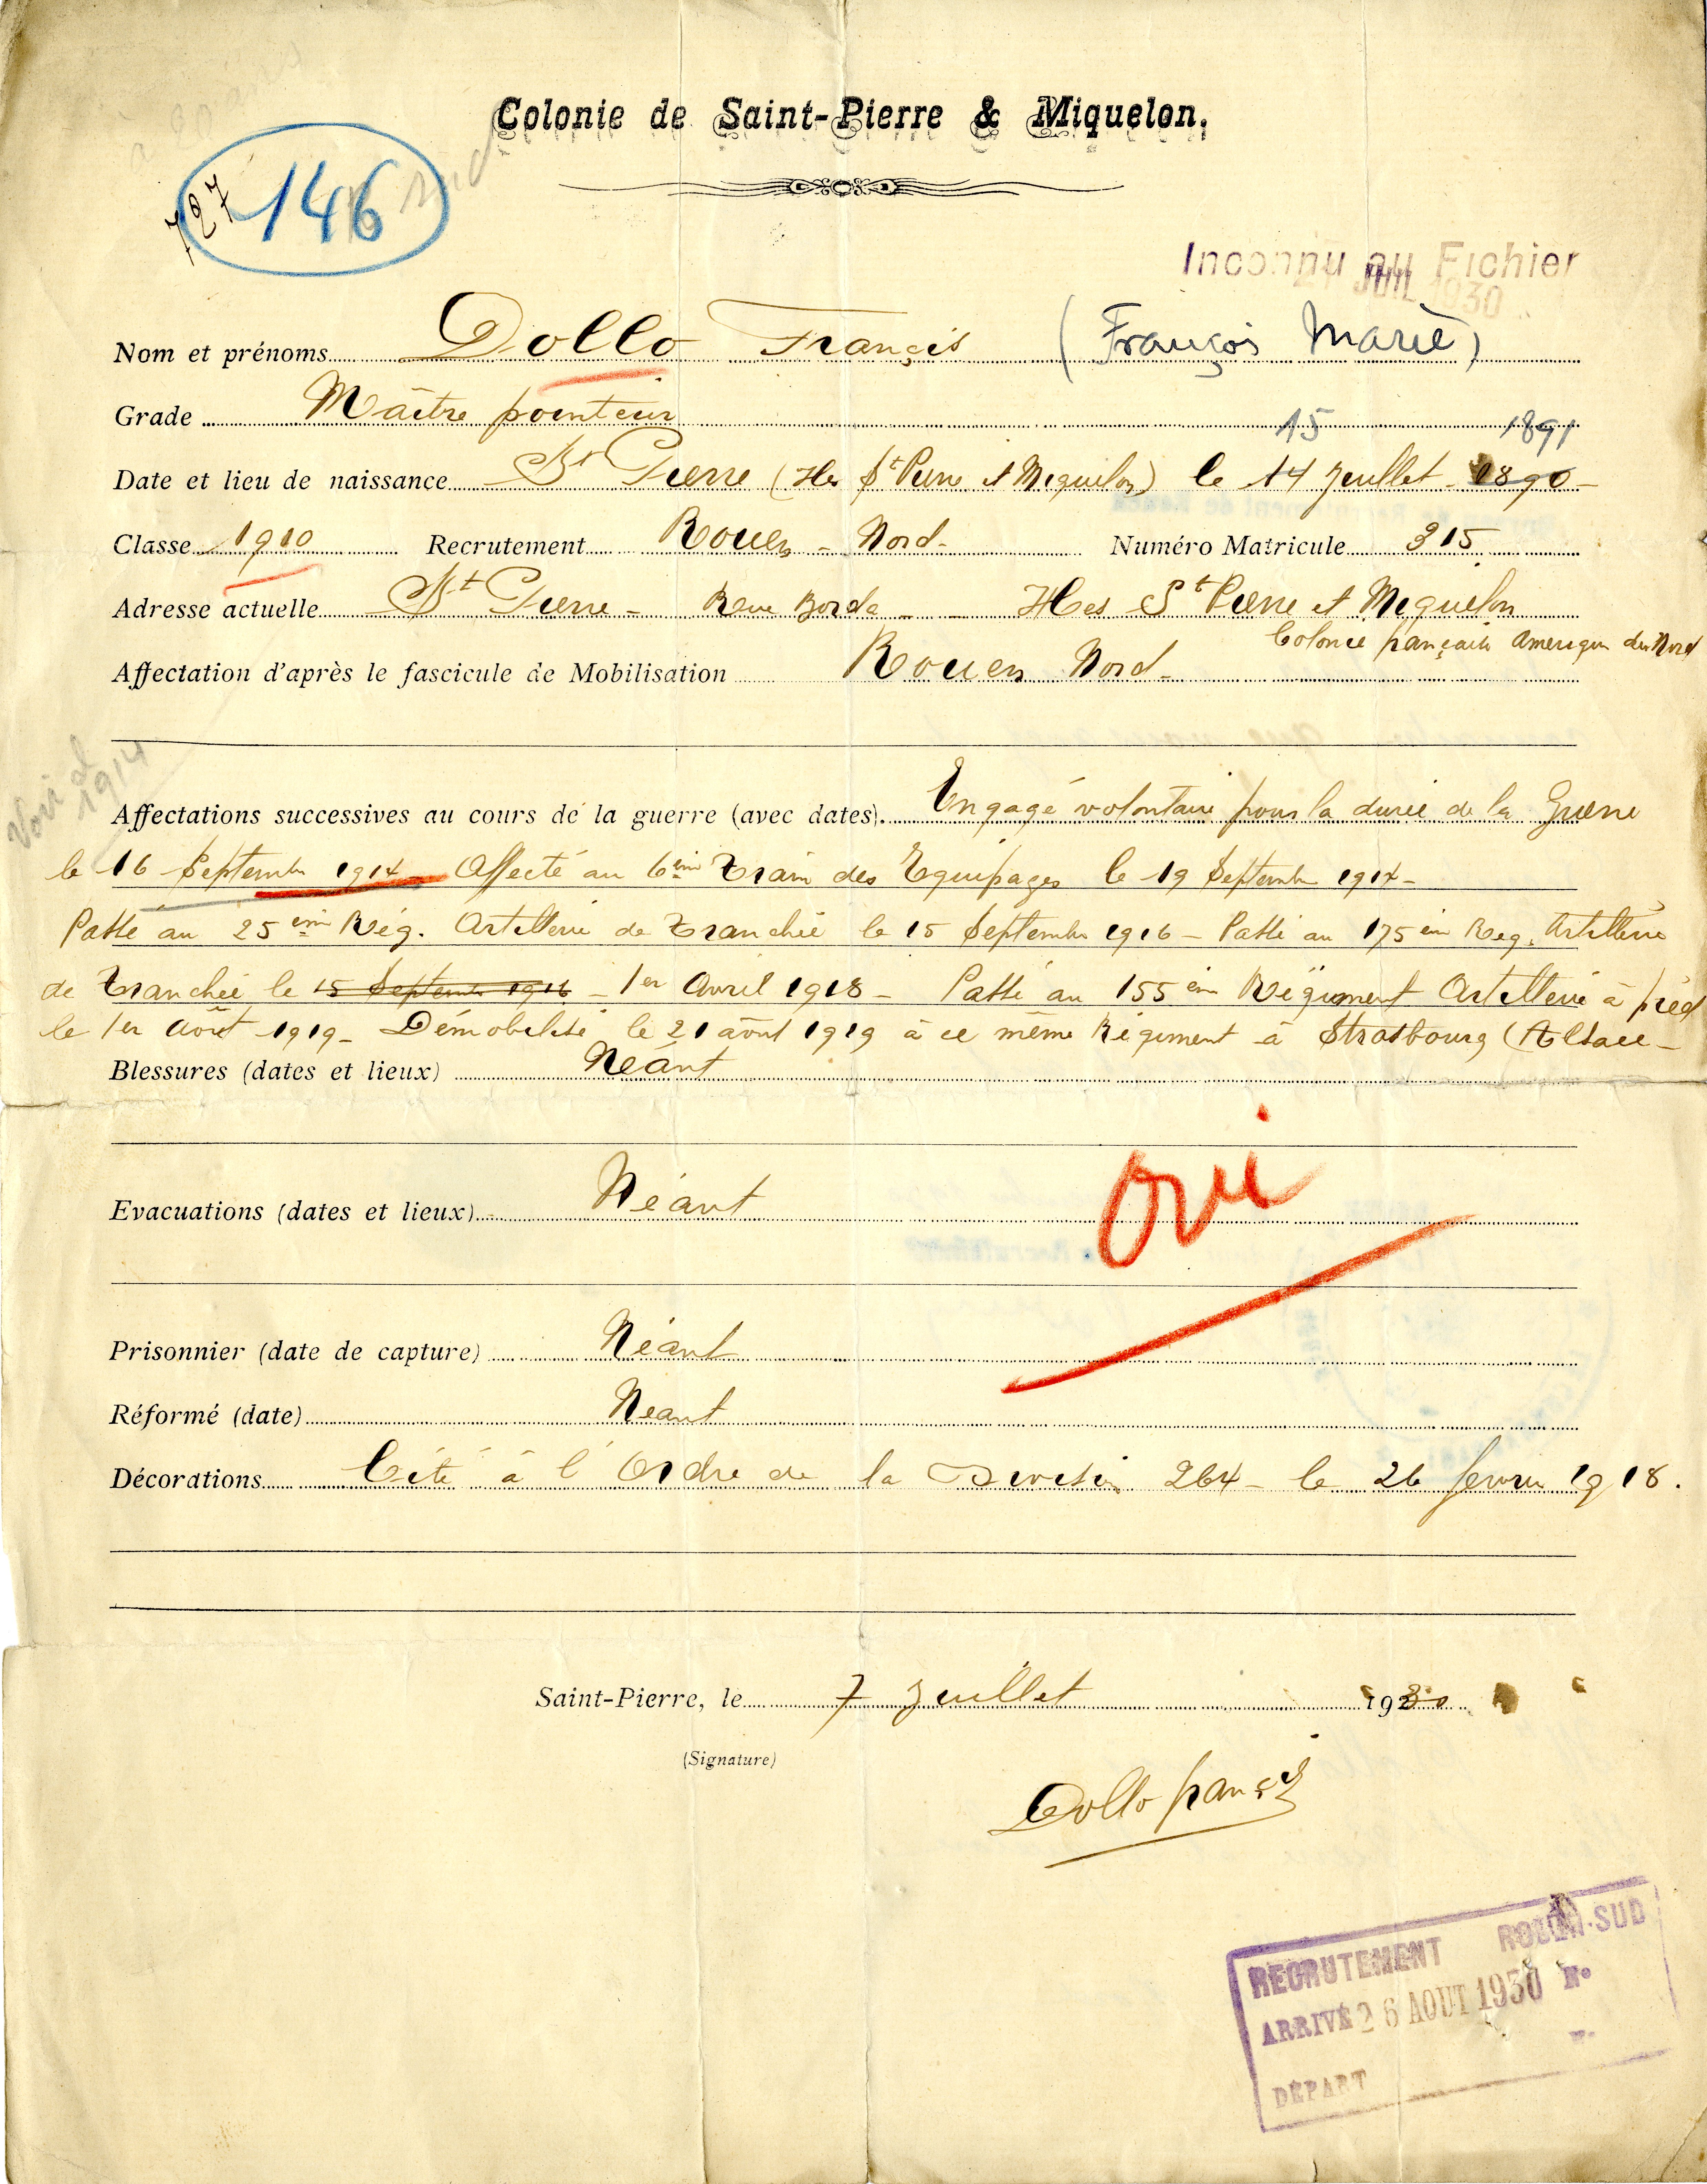 Colonie de Saint-Pierre & Miquelon.
727
146
Inconnu au Fichier
21 JUIL 1930
Nom et prénoms Dollo Françis (François Marie)
Grade Maître pointeur
15 1891
Date et lieu de naissance St Pierre (Iles St Pierre et Miquelon) le 14 Juillet 1890
Classe 1910 Recrutement Rouen - Nord - Numéro Matricule 315
Adresse actuelle St Pierre - Rue Borda - Iles St Pierre et Miquelon
Colonie française Amerique du Nord
Affectation d'après le fascicule de Mobilisation Rouen Nord -
Voir d
1914
Affectations successives au cours de la guerre (avec dates). Engagé volontaire pour la durée de la Guerre
le 16 Septembre 1914 - Affecté au 6ème Train des Equipages le 19 Septembre 1914 -
Passé au 25ème Rég. Artillerie de Tranchée le 15 Septembre 1916 - Passé au 175ème Reg. Artillerie
de Tranchée le 15 Septembre 1916 - 1er Avril 1918 - Passé au 155ème Régiment Artillerie à pied
le 1er Août 1919 - Démobilisé le 21 août 1919 à ce même Régiment à Strasbourg (Alsace -
Blessures (dates et lieux) Néant
Evacuations (dates et lieux) Néant
Oui
Prisonnier (date de capture) Néant
Réformé (date) Neant
Décorations Cité à l'Ordre de la Division 264 - le 26 fevrier 1918.
Saint-Pierre, le 7 Juillet 1930
(Signature)
Dollo françis
RECRUTEMENT ROUEN-SUD
ARRIVÉ 26 AOUT 1930 No
DÉPART No